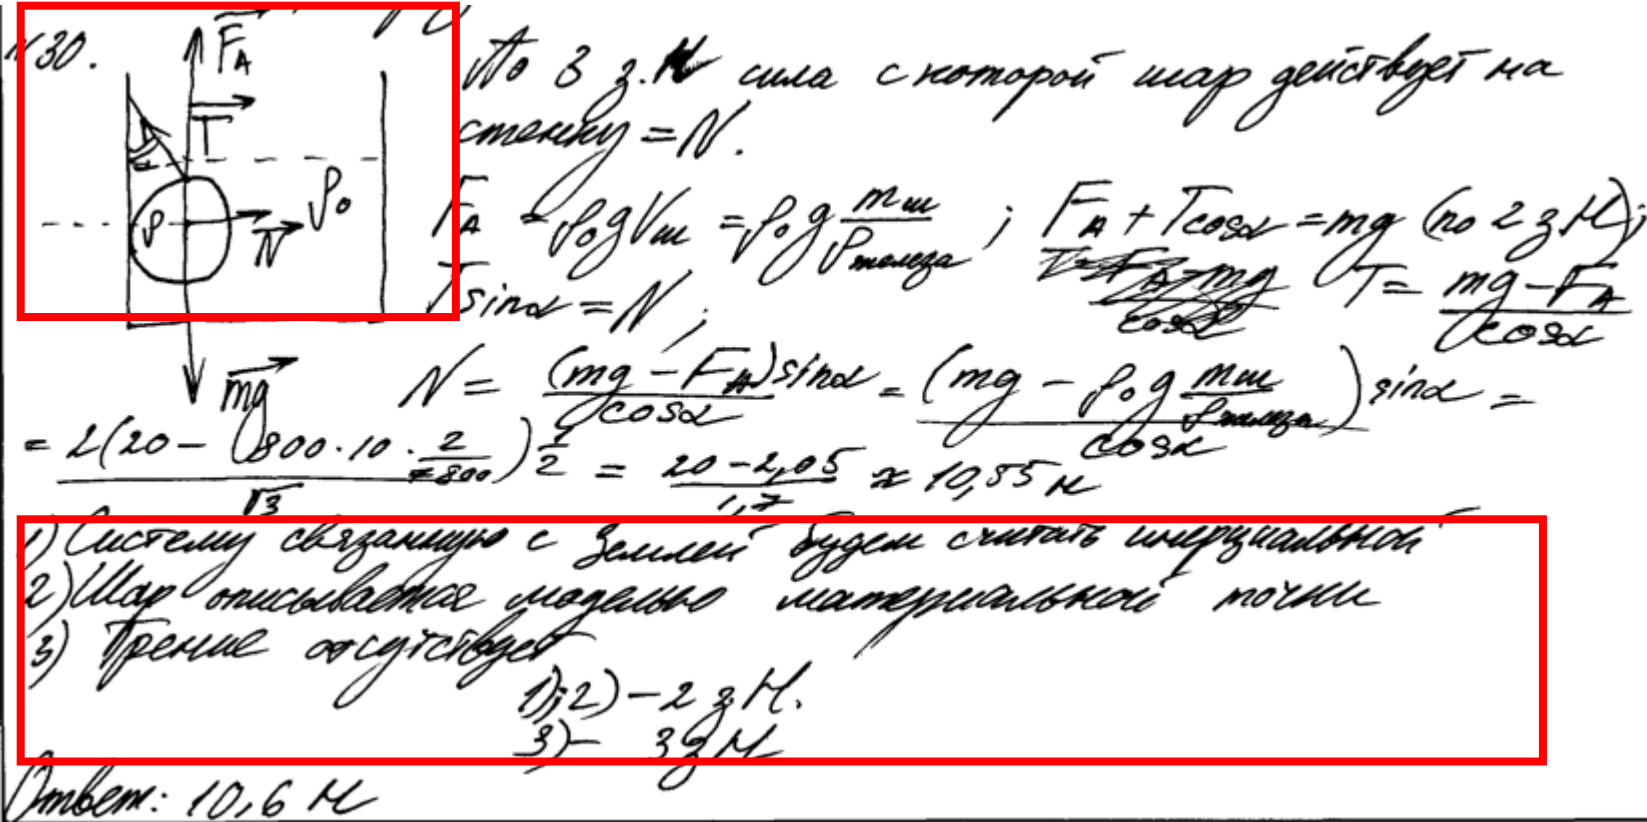 №30.
F_A
T
α
ρ
ρ₀
N
mg
По 3 з.Н сила с которой шар действует на
стенку = N.
F_A = ρ₀gVш = ρ₀g mш/ρжелеза ; F_A + Tcosα = mg (по 2 з Н);
Tsinα = N ; T = (mg − F_A)/cosα
N = (mg − F_A)sinα/cosα = (mg − ρ₀g mш/ρжелеза)sinα/cosα =
= 2(20 − 800·10·2/7800)½/√3 = (20 − 2,05)/1,7 ≈ 10,55 Н
1) Систему связанную с Землей будем считать инерциальной
2) Шар описывается моделью материальной точки
3) Трение отсутствует
1);2) − 2 з Н.
3) − 3 з Н
Ответ: 10,6 Н